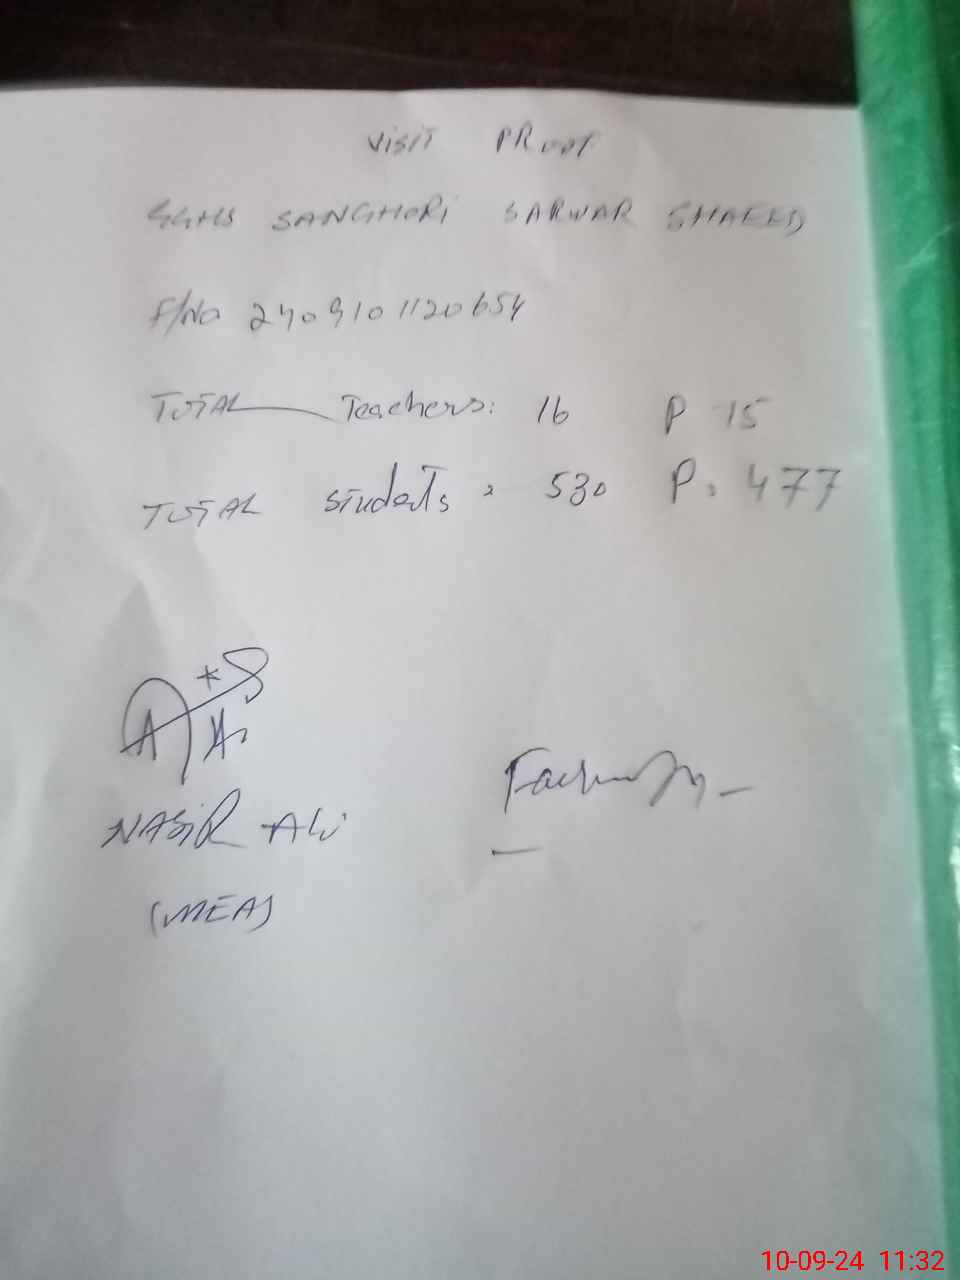 VISIT PROOF
GGHS SANGHORI SARWAR SHAEED
F/No 2409101120654
TOTAL Teachers: 16 P 15
TOTAL Students = 530 P. 477
NASIR ALi
(MEA)
10-09-24 11:32